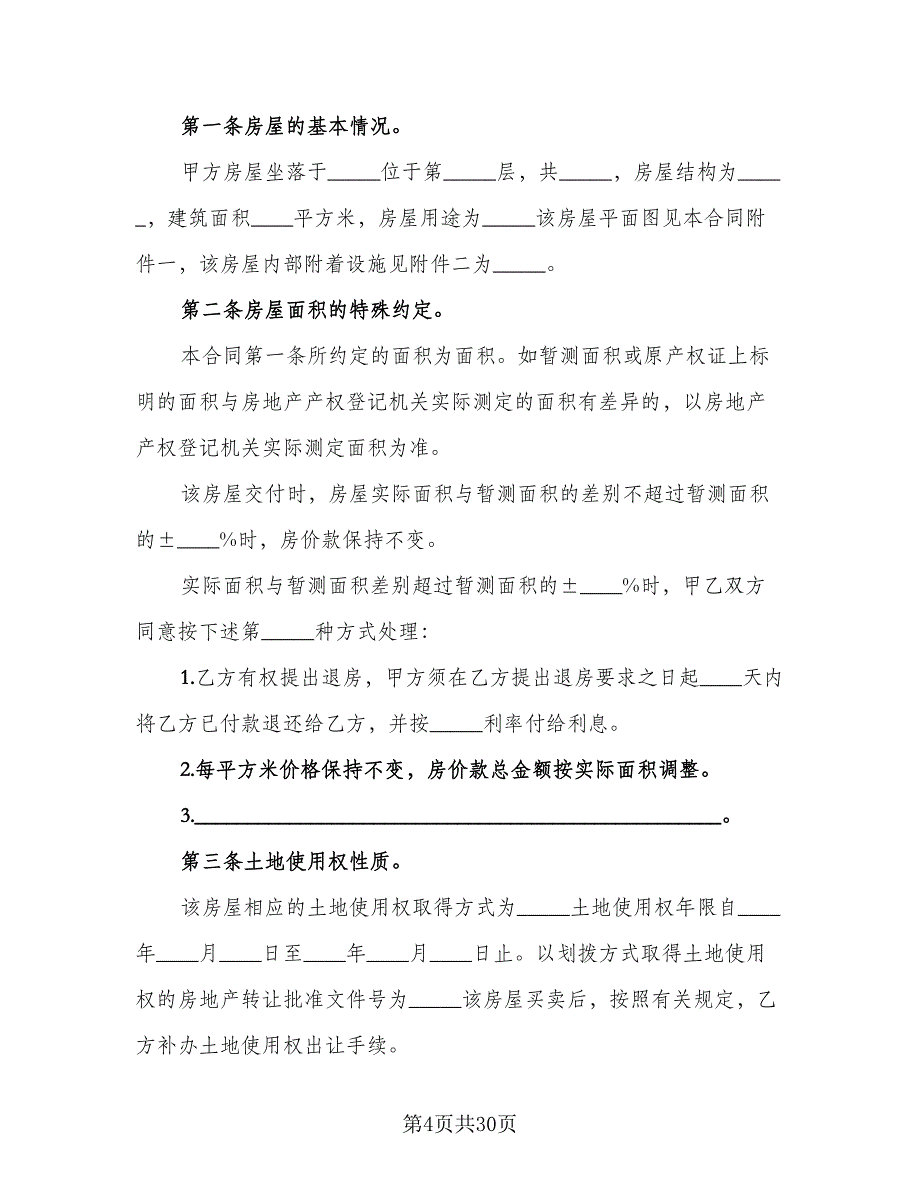 第一条房屋的基本情况。
甲方房屋坐落于_____位于第_____层，共_____，房屋结构为____
_，建筑面积____平方米，房屋用途为_____该房屋平面图见本合同附
件一，该房屋内部附着设施见附件二为_____。
第二条房屋面积的特殊约定。
本合同第一条所约定的面积为面积。如暂测面积或原产权证上标
明的面积与房地产产权登记机关实际测定的面积有差异的，以房地产
产权登记机关实际测定面积为准。
该房屋交付时，房屋实际面积与暂测面积的差别不超过暂测面积
的±____%时，房价款保持不变。
实际面积与暂测面积差别超过暂测面积的±____%时，甲乙双方
同意按下述第_____种方式处理：
1.乙方有权提出退房，甲方须在乙方提出退房要求之日起____天内
将乙方已付款退还给乙方，并按_____利率付给利息。
2.每平方米价格保持不变，房价款总金额按实际面积调整。
3.__________________________________________________。
第三条土地使用权性质。
该房屋相应的土地使用权取得方式为_____土地使用权年限自____
年____月____日至____年____月____日止。以划拨方式取得土地使用
权的房地产转让批准文件号为_____该房屋买卖后，按照有关规定，乙
方补办土地使用权出让手续。
第4页共30页